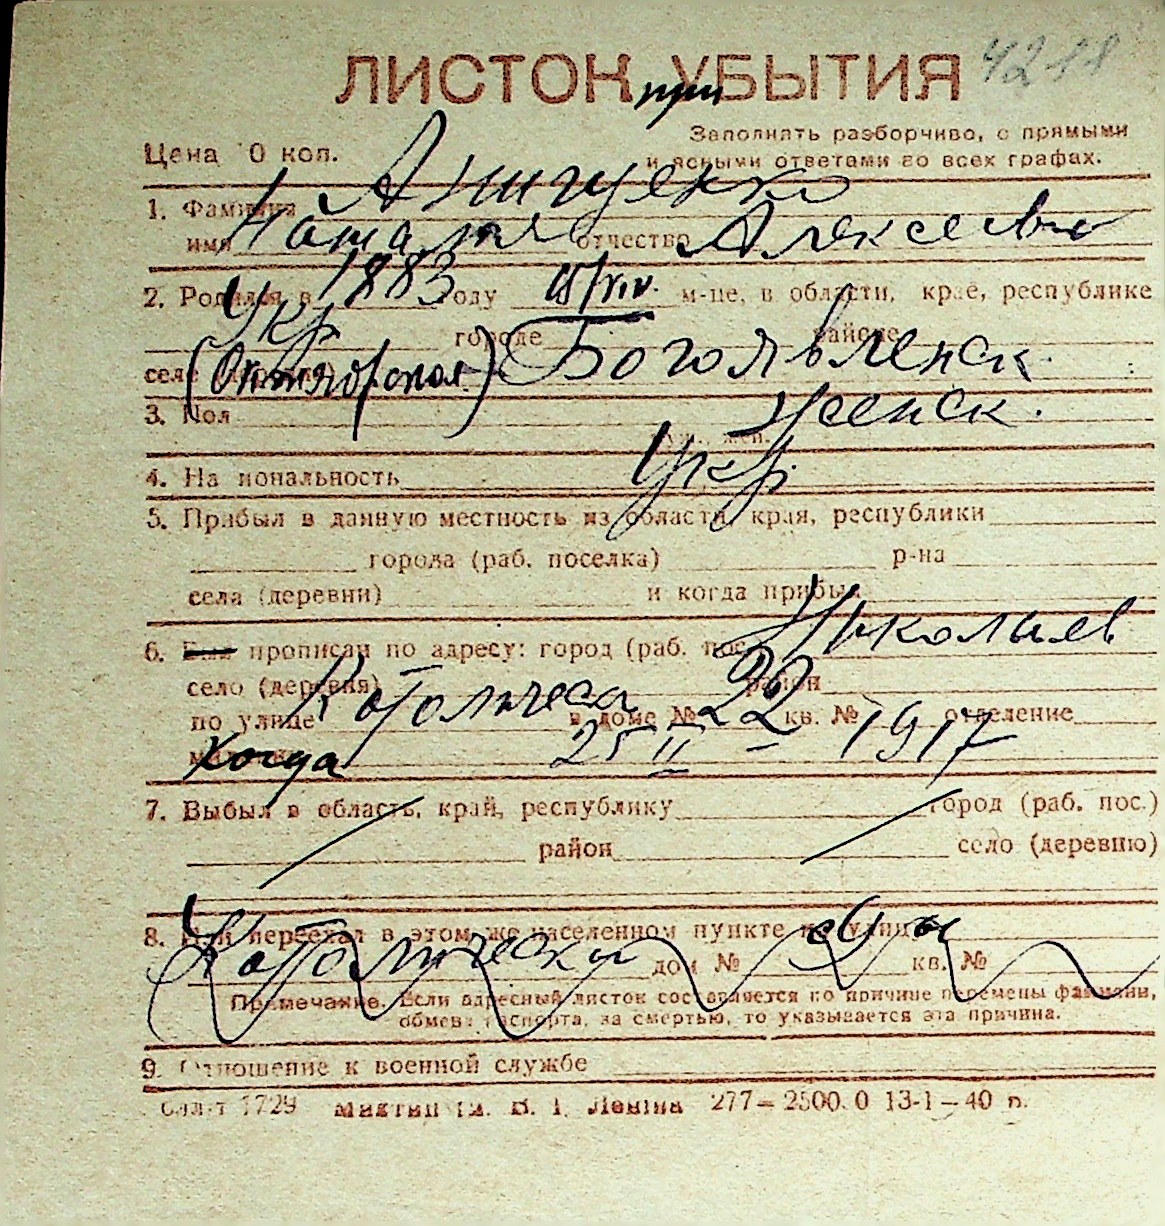 ЛИСТОК УБЫТИЯ
при
Цена 0 коп.
Заполнять разборчиво, с прямыми
и ясными ответами во всех графах.
1. Фамилия
имя Наталия отчество Алексеевн
2. Родился в 1883 году м-це, в области, крае, республике
Укр городе районе
селе (Октябрьская) Богоявленск.
3. Пол женск.
муж., жен.
4. Национальность Укр.
5. Прибыл в данную местность из области, края, республики
города (раб. поселка) р-на
села (деревни) и когда прибыл
6. Был прописан по адресу: город (раб. пос. Николаев
село (деревня) район
по улице Католическа в доме № 22 кв. № отделение
когда 25 II - 1917
7. Выбыл в область, край, республику город (раб. пос.)
район село (деревню)
8. Или переехал в этом же населенном пункте на улицу
Католическа дом № кв. №
Примечание. Если адресный листок составляется по причине перемены фамилии,
обмена паспорта, за смертью, то указывается эта причина.
9. Отношение к военной службе
1729 Ленина 277–2500.0 13-1–40 г.